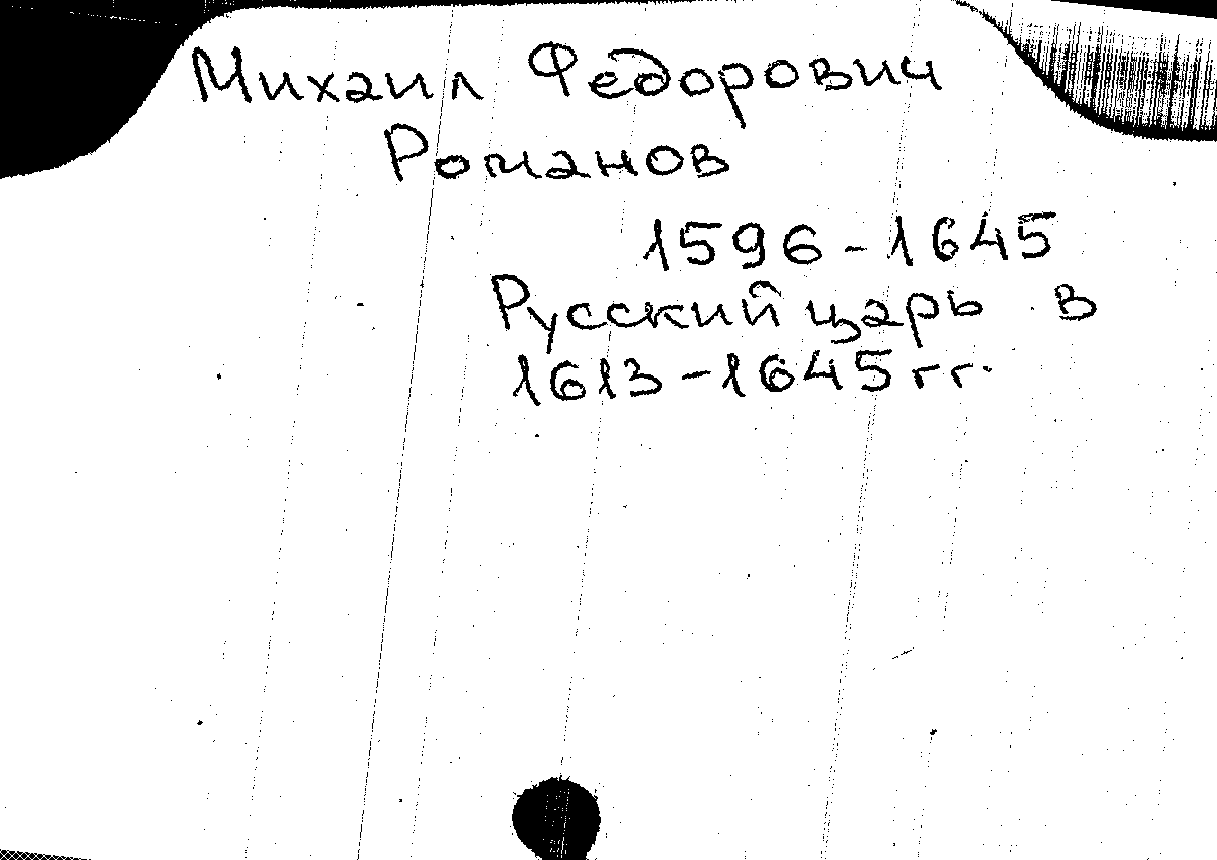 Михаил Федорович
Романов
1596-1645
Русский царь в
1613-1645 гг.